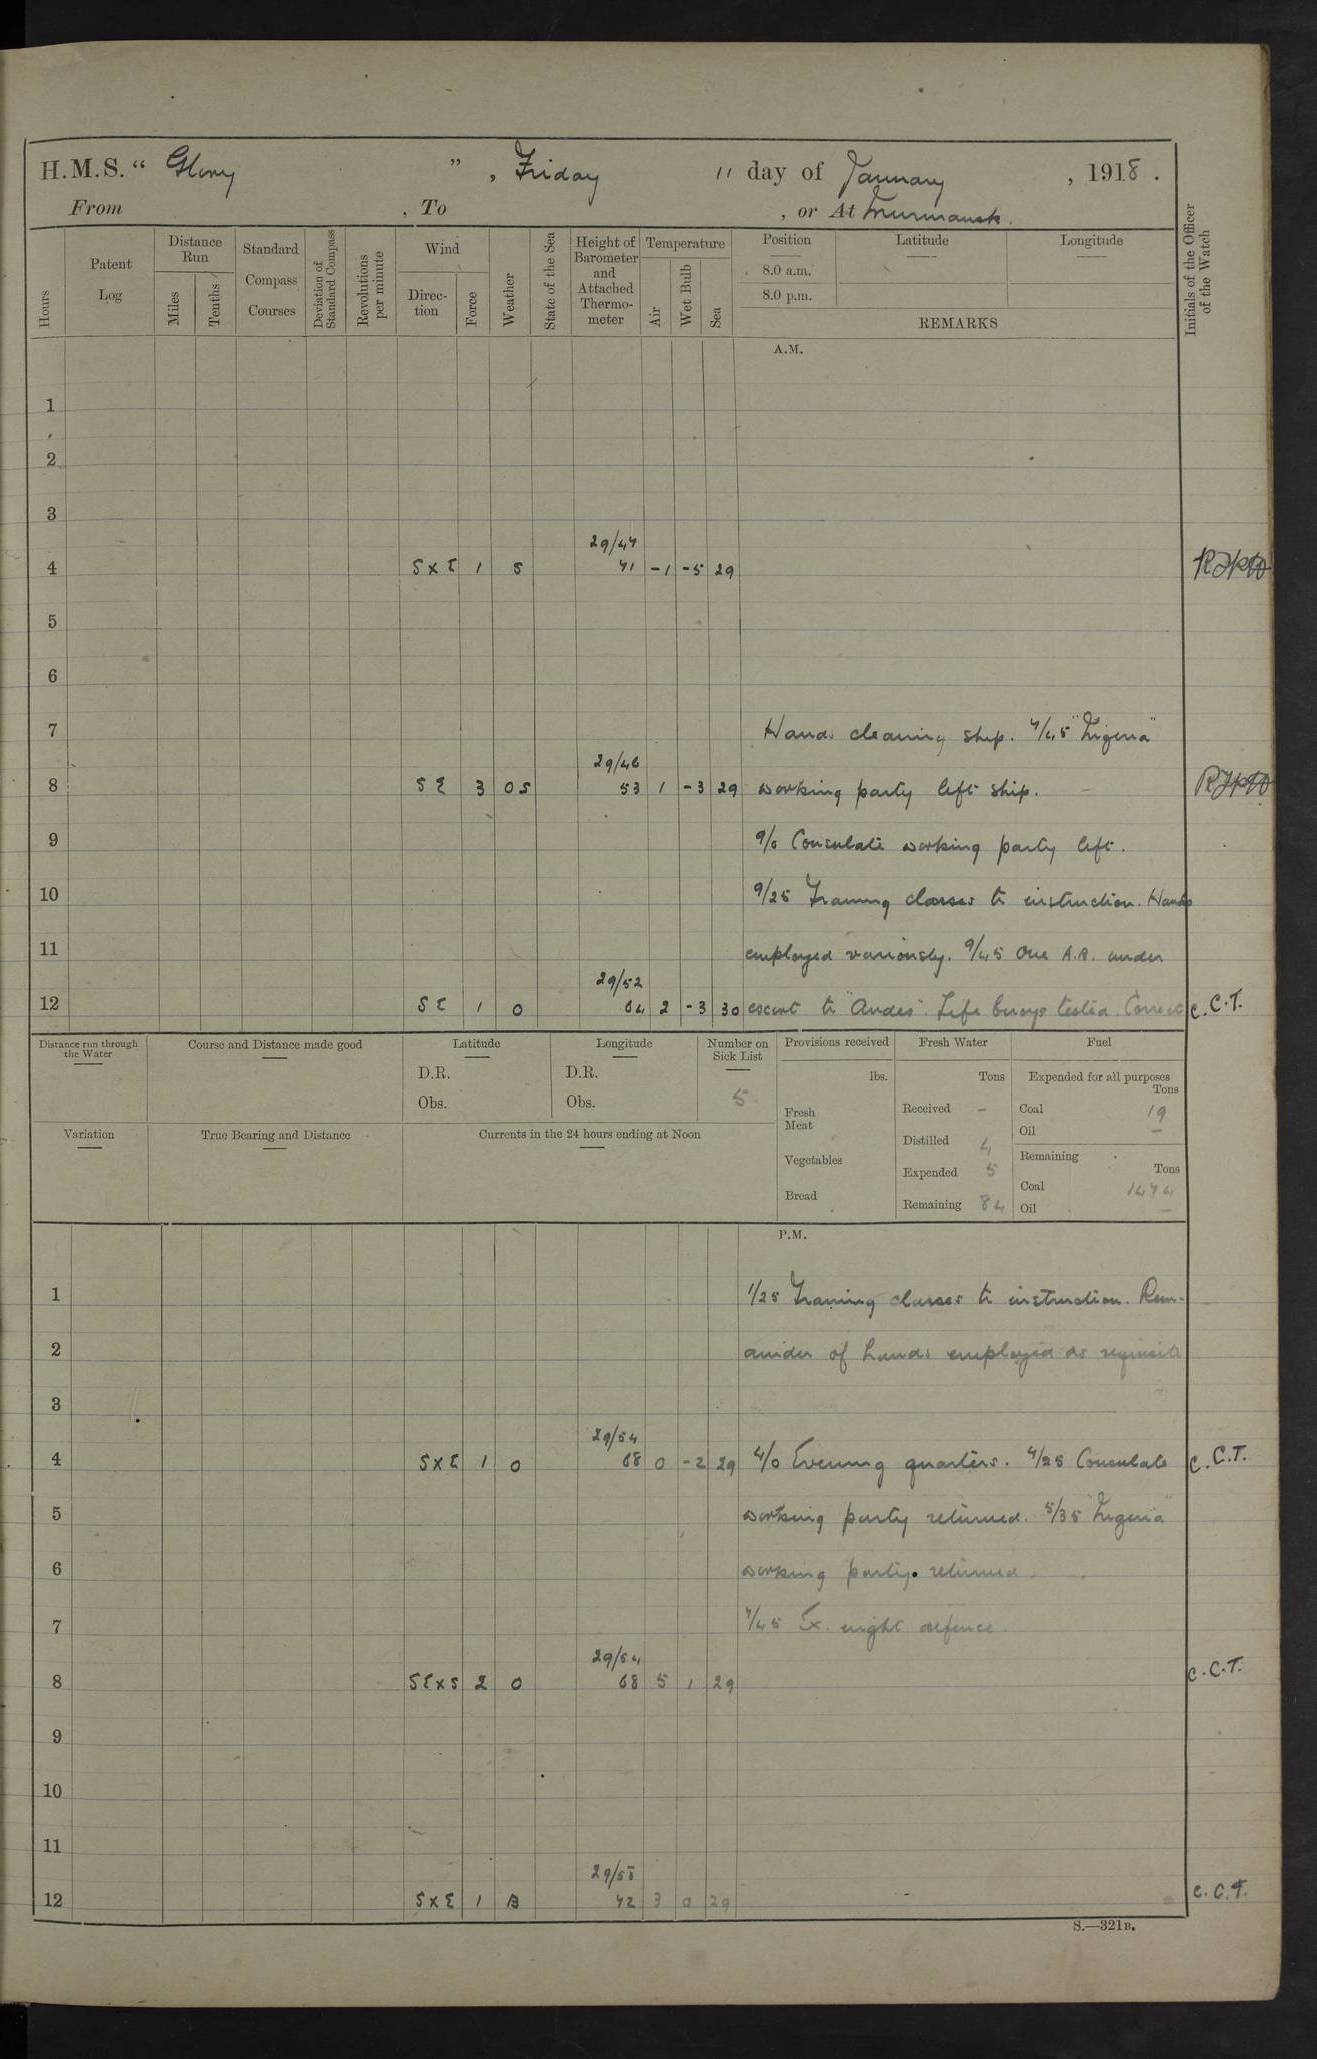 H.M.S. “ Glory ” , Friday 11 day of January , 1918 .
From , To , or At Murmansk .
Hours
Patent Log
Distance Run
Miles
Tenths
Standard Compass Courses
Deviation of Standard Compass
Revolutions per minute
Wind
Direc-tion
Force
Weather
State of the Sea
Height of Barometer and Attached Thermo-meter
Temperature
Air
Wet Bulb
Sea
Position
8.0 a.m.
8.0 p.m.
Latitude
Longitude
REMARKS
Initials of the Officer of the Watch
A.M.
1
2
3
29/47
4 S x E 1 S 71 -1 -5 29
5
6
7 Hands cleaning ship. 7/45 "Nigeria"
29/46
8 SE 3 OS 53 1 -3 29 working party left ship.
9 9/0 Consulate working party left.
10 9/25 Training classes to instruction. Hands
11 employed variously. 9/45 One A.B. under
29/52
12 SE 1 O 64 2 -3 30 escort to "Andes". Life buoys tested. Correct C.C.T.
Distance run through the Water
Course and Distance made good
Latitude
D.R.
Obs.
Longitude
D.R.
Obs.
Number on Sick List
5
Provisions received
lbs.
Fresh Meat
Vegetables
Bread
Fresh Water
Tons
Received -
Distilled 4
Expended 5
Remaining 84
Fuel
Expended for all purposes
Tons
Coal 19
Oil —
Remaining
Tons
Coal 1474
Oil —
Variation
True Bearing and Distance
Currents in the 24 hours ending at Noon
P.M.
1 1/25 Training classes to instruction. Rem-
2 ainder of hands employed as requisite
3
29/54
4 S x E 1 O 68 0 -2 29 4/0 Evening quarters. 4/25 Consulate C.C.T.
5 working party returned. 5/35 "Nigeria"
6 working party. returned
7 7/45 Ex. night defence.
29/54
8 SE x S 2 O 68 5 1 29 C.C.T.
9
10
11
29/58
12 S x E 1 B 72 3 0 29 C.C.T.
S.—321B.